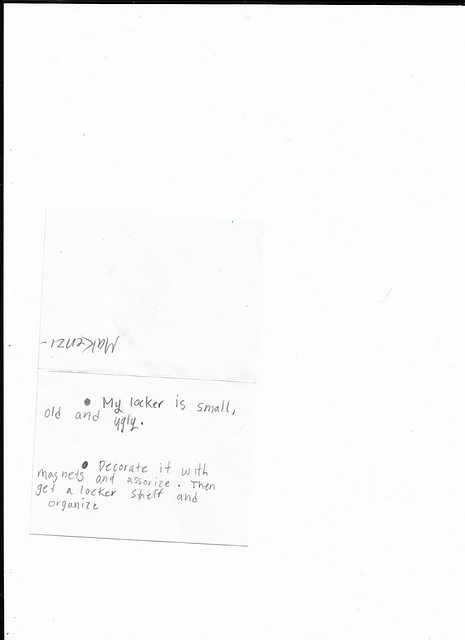 Makenzi-
• My locker is small,
old and ugly.
• Decorate it with
magnets and assorize. Then
get a locker shelf and
organize